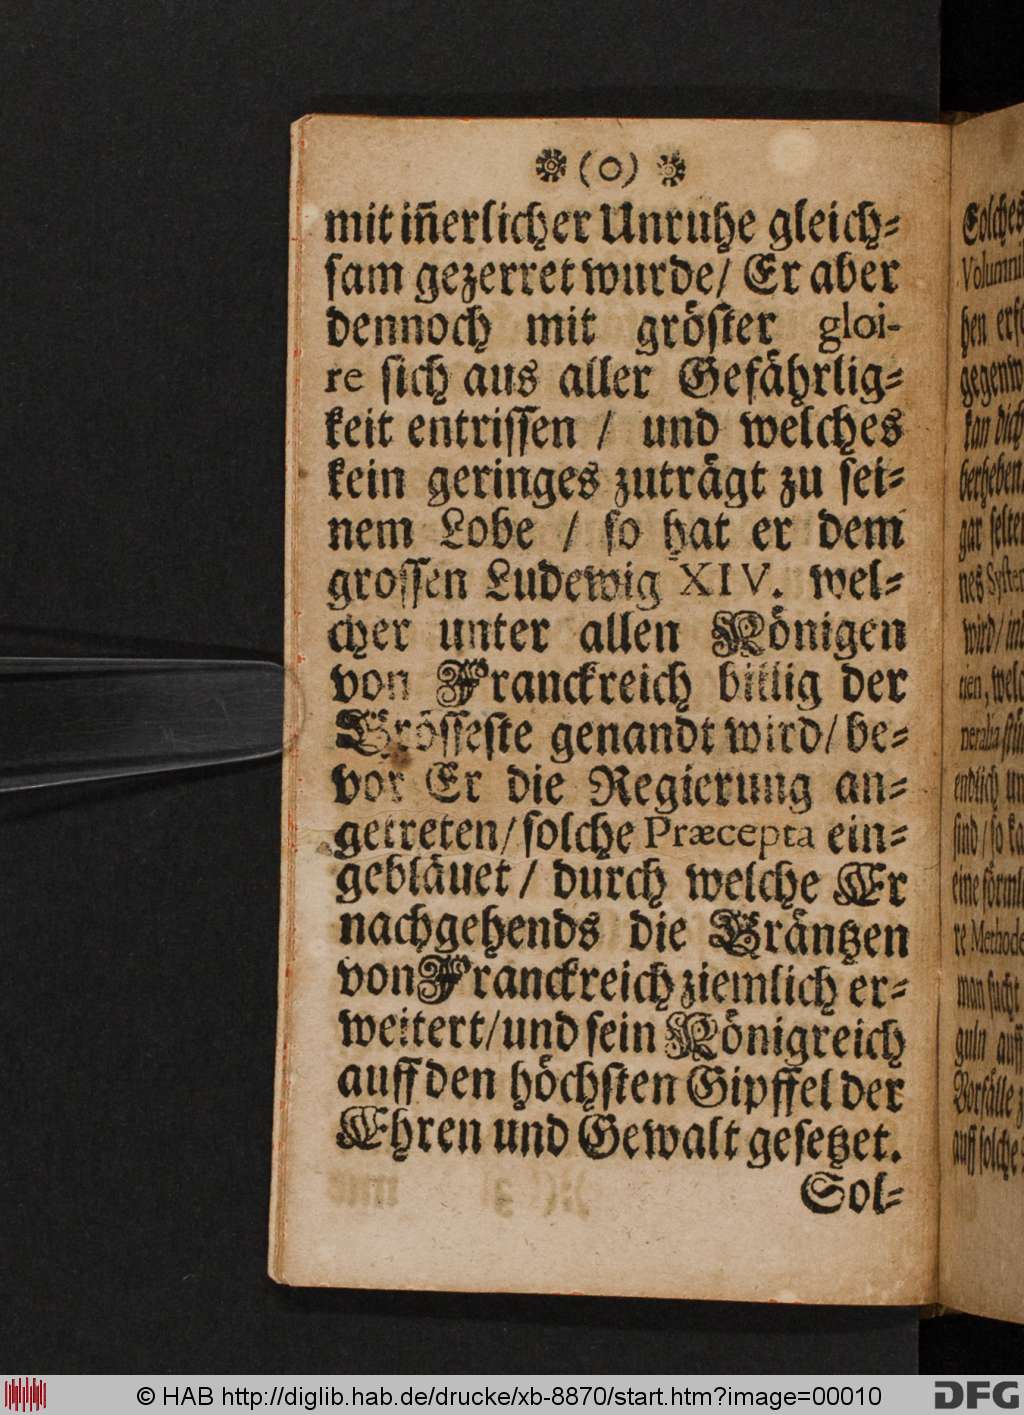 ❁ (o) ❁
mit iñerlicher Unruhe gleich⸗
sam gezerret wurde/ Er aber
dennoch mit gröster gloi-
re sich aus aller Gefährlig⸗
keit entrissen / und welches
kein geringes zuträgt zu sei⸗
nem Lobe / so hat er dem
grossen Ludewig XIV. wel⸗
cher unter allen Königen
von Franckreich billig der
Grösseste genandt wird/ be⸗
vor Er die Regierung an⸗
getreten/ solche Præcepta ein⸗
gebläuet / durch welche Er
nachgehends die Gräntzen
von Franckreich ziemlich er⸗
weitert/ und sein Königreich
auff den höchsten Gipffel der
Ehren und Gewalt gesetzet.
Sol⸗
Solches
hen
gegenw
kan dich
gar selten
wird/
endlich
sind / so
eine
re Methode
man sucht
guln auff
Vorfälle
auff solche
© HAB http://diglib.hab.de/drucke/xb-8870/start.htm?image=00010
DFG